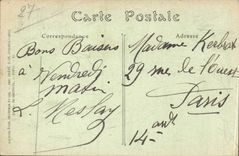 27
Carte Postale
Correspondance
Adresse
Bons Baisers
à Vendredi
matin
Madame
29 rue de l'ouest
Paris
14-